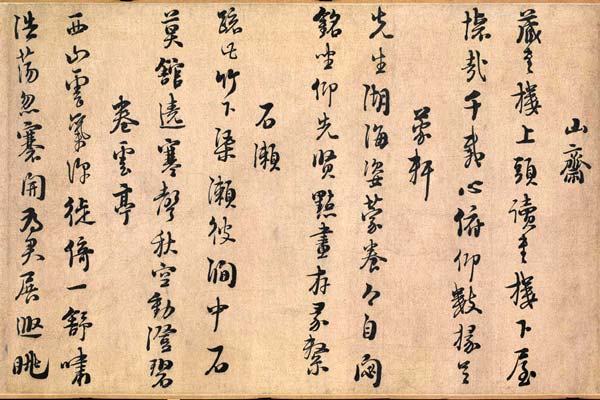 山齋
藏書樓上頭讀書樓下屋
懷哉千載心俯仰數椽足
蒙軒
先生湖海姿蒙養今自閟
銘坐仰先賢點畫存彖繫
石瀨
疏此竹下渠漱彼澗中石
莫舘遶寒聲秋空動澄碧
卷雲亭
西山雲氣深徙倚一舒嘯
浩蕩忽褰開為君展遐眺